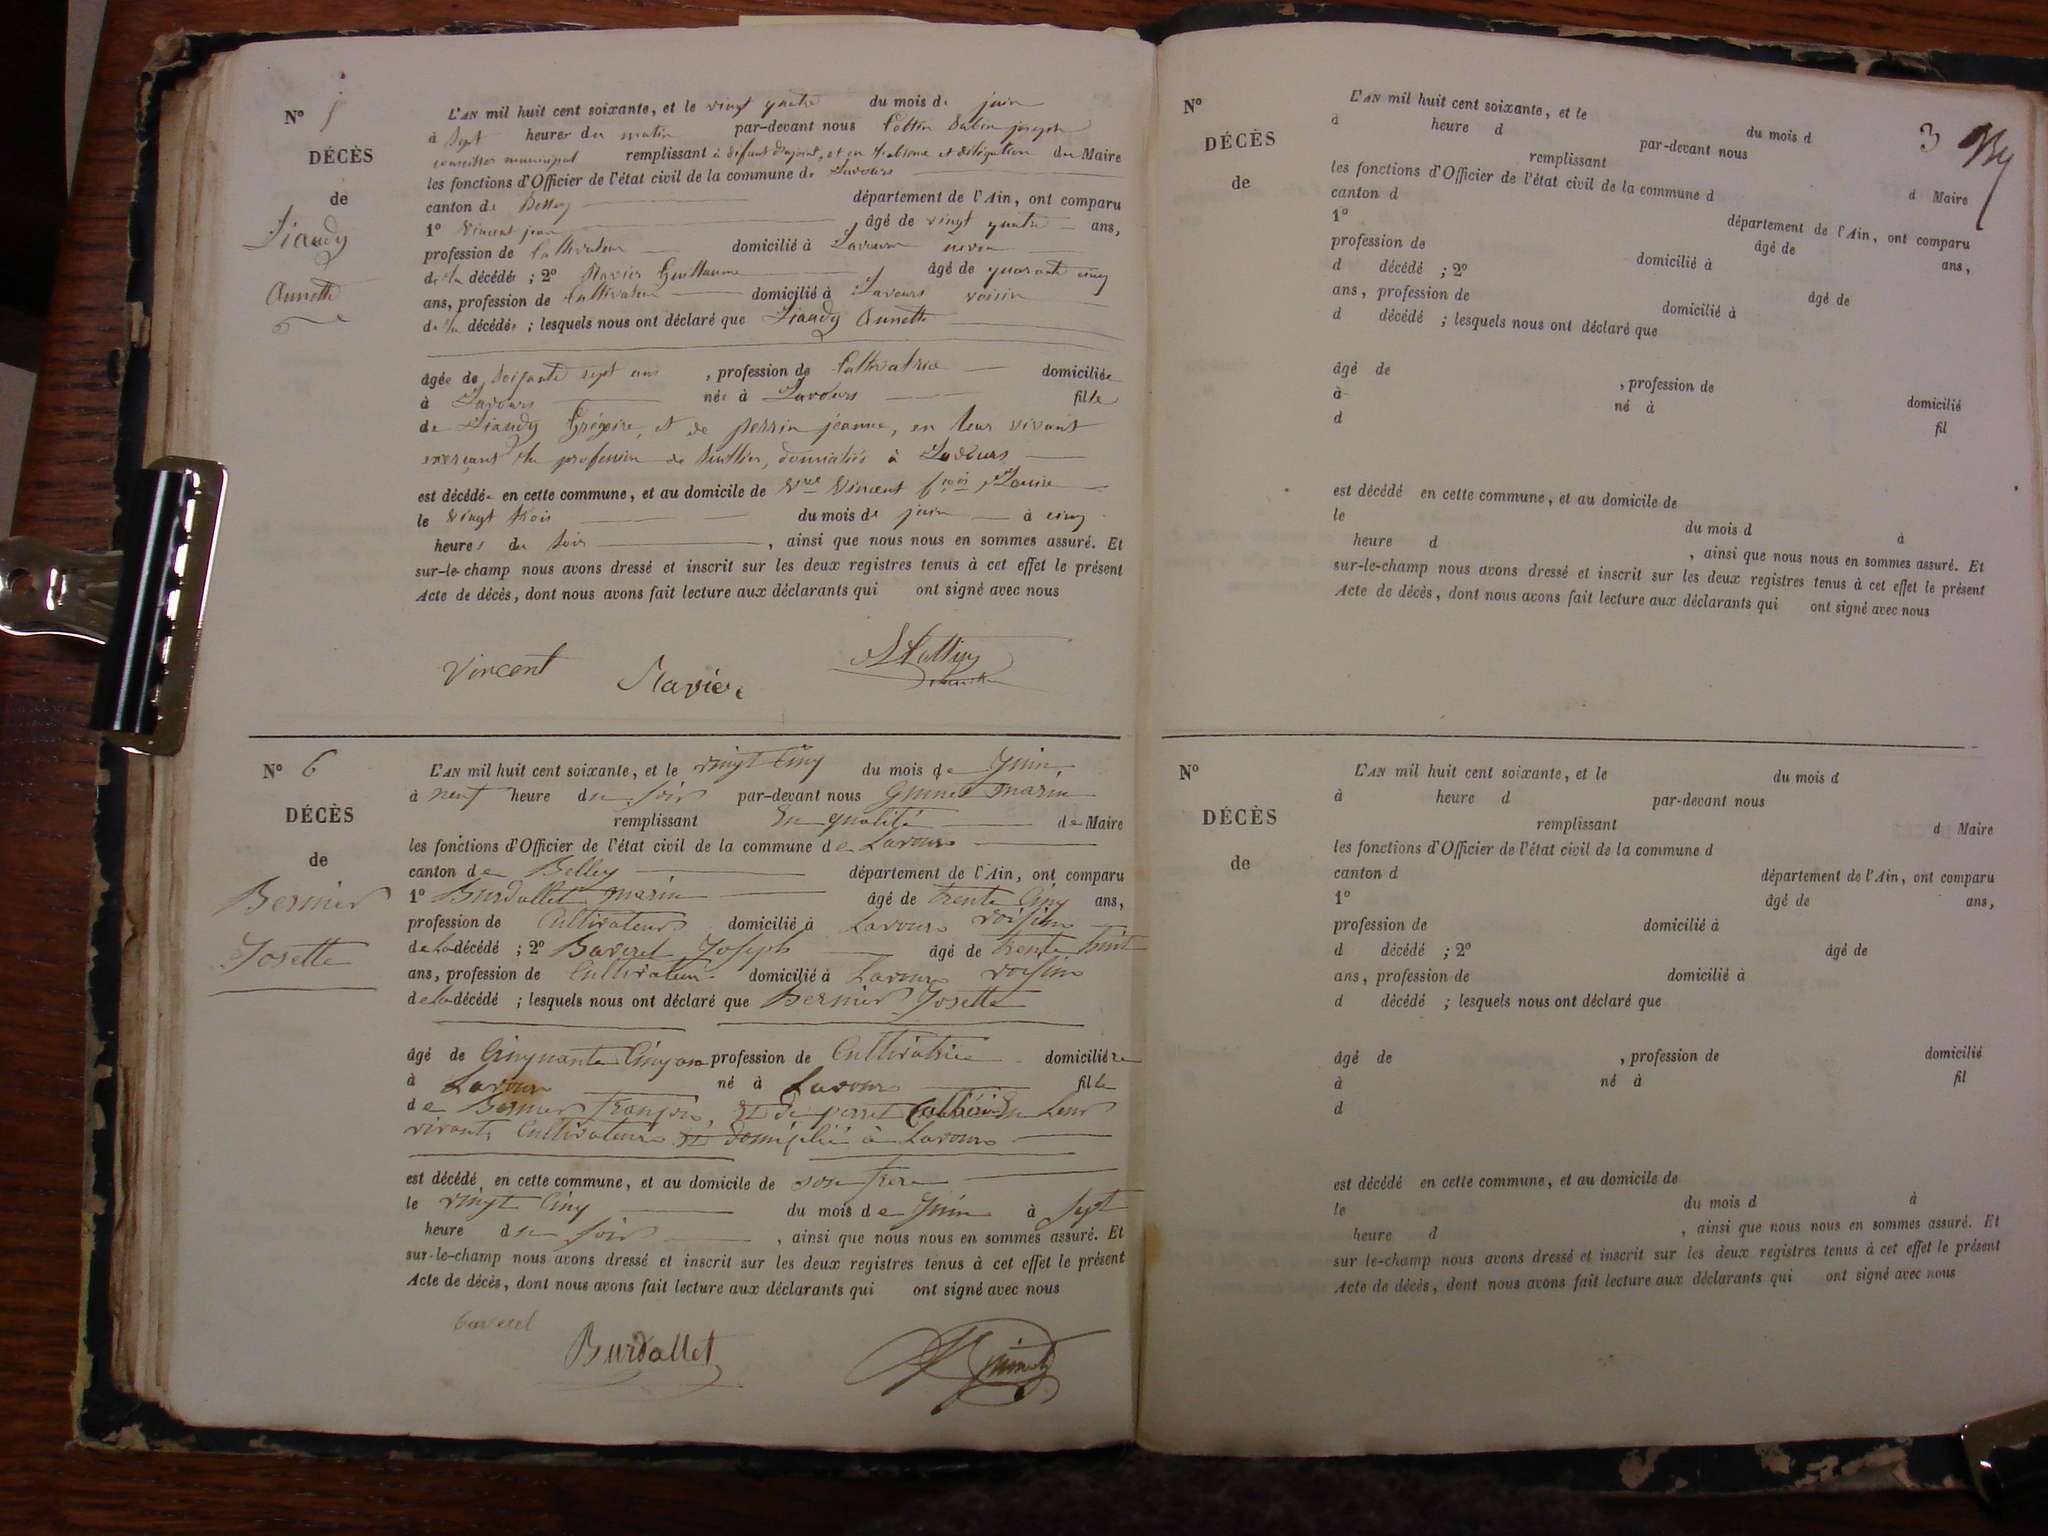 N° 5
L'AN mil huit cent soixante, et le vingt quatre du mois de juin
à sept heures du matin par-devant nous Joseph
DÉCÈS
conseiller municipal remplissant à défaut d'adjoint, et en l'absence et délégation du Maire
les fonctions d'Officier de l'état civil de la commune de Lavours
de
canton de Belley département de l'Ain, ont comparu
Annette
1° Vincent jean âgé de vingt quatre ans,
profession de Cultivateur domicilié à Lavours neveu
de la décédée ; 2° Ravier Guillaume âgé de quarante cinq
ans, profession de Cultivateur domicilié à Lavours voisin
de la décédée ; lesquels nous ont déclaré que Annette
âgée de soixante sept ans , profession de Cultivatrice domiciliée
à Lavours née à Lavours fille
de Grégoire, et de perrin jeanne, en leur vivant
exerçant la profession de domiciliés à Lavours
est décédée en cette commune, et au domicile de Vve Vincent fçois Louise
le vingt trois du mois de juin à cinq
heures du soir , ainsi que nous nous en sommes assuré. Et
sur-le-champ nous avons dressé et inscrit sur les deux registres tenus à cet effet le présent
Acte de décès, dont nous avons fait lecture aux déclarants qui ont signé avec nous
Vincent Ravier
N° 6
L'AN mil huit cent soixante, et le vingt Cinq du mois de Juin
à neuf heure du soir par-devant nous marin
DÉCÈS
remplissant En qualité de Maire
les fonctions d'Officier de l'état civil de la commune de Lavours
de
canton de Belley département de l'Ain, ont comparu
Bernier
1° Burdallet marin âgé de trente Cinq ans,
profession de Cultivateur domicilié à Lavours voisin
Josette
de la décédé ; 2° Baverel Joseph âgé de trente huit
ans, profession de Cultivateur domicilié à Lavours voisin
de la décédé ; lesquels nous ont déclaré que Bernier Josette
âgé de Cinquante Cinq ans profession de Cultivatrice domiciliée
à Lavours né à Lavours fille
de Bernier françois Et de perret Catherine En Leur
vivant Cultivateurs Et domicilié à Lavours
est décédé en cette commune, et au domicile de son frere
le vingt Cinq du mois de Juin à sept
heure du soir , ainsi que nous nous en sommes assuré. Et
sur-le-champ nous avons dressé et inscrit sur les deux registres tenus à cet effet le présent
Acte de décès, dont nous avons fait lecture aux déclarants qui ont signé avec nous
baverel Burdallet
3
N°
L'AN mil huit cent soixante, et le du mois d
à heure d par-devant nous
DÉCÈS
remplissant d Maire
les fonctions d'Officier de l'état civil de la commune d
de
canton d département de l'Ain, ont comparu
1° âgé de ans,
profession de domicilié à
d décédé ; 2° âgé de
ans, profession de domicilié à
d décédé ; lesquels nous ont déclaré que
âgé de , profession de domicilié
à né à fil
d
est décédé en cette commune, et au domicile de
le du mois d à
heure d , ainsi que nous nous en sommes assuré. Et
sur-le-champ nous avons dressé et inscrit sur les deux registres tenus à cet effet le présent
Acte de décès, dont nous avons fait lecture aux déclarants qui ont signé avec nous
N°
L'AN mil huit cent soixante, et le du mois d
à heure d par-devant nous
DÉCÈS
remplissant d Maire
les fonctions d'Officier de l'état civil de la commune d
de
canton d département de l'Ain, ont comparu
1° âgé de ans,
profession de domicilié à
d décédé ; 2° âgé de
ans, profession de domicilié à
d décédé ; lesquels nous ont déclaré que
âgé de , profession de domicilié
à né à fil
d
est décédé en cette commune, et au domicile de
le du mois d à
heure d , ainsi que nous nous en sommes assuré. Et
sur le-champ nous avons dressé et inscrit sur les deux registres tenus à cet effet le présent
Acte de décès, dont nous avons fait lecture aux déclarants qui ont signé avec nous